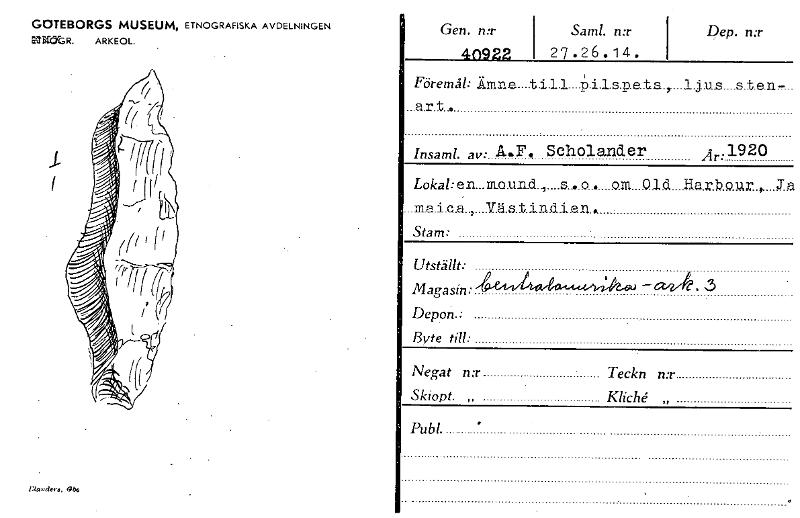 GÖTEBORGS MUSEUM, ETNOGRAFISKA AVDELNINGEN
ETNOGR. ARKEOL.
1
1
Gen. n:r Saml. n:r Dep. n:r
40922 27.26.14.
Föremål: Ämne till pilspets, ljus sten-
art.
Insaml. av: A.F. Scholander År: 1920
Lokal: en mound, s.o. om Old Harbour, Ja
maica, Västindien.
Stam:
Utställt:
Magasin: Centralamerika - ark. 3
Depon.:
Byte till:
Negat n:r Teckn n:r
Skiopt. „ Kliché „
Publ.